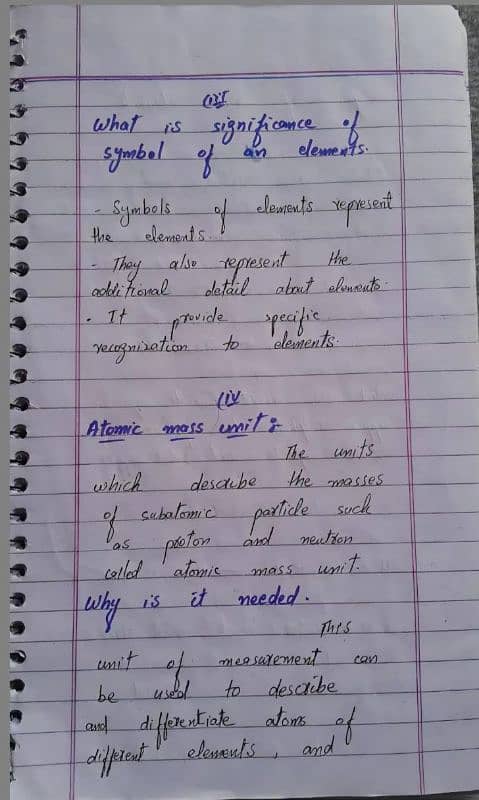 (iii
What is significance of
symbol of an elements.
- Symbols of elements represent
the elements.
- They also represent the
additional detail about elements.
- It provide specific
recognization to elements.
(iv
Atomic mass unit:-
The units
which describe the masses
of subatomic particle such
as proton and neutron
called atomic mass unit.
Why is it needed.
This
unit of measurement can
be used to describe
and differentiate atoms of
different elements, and